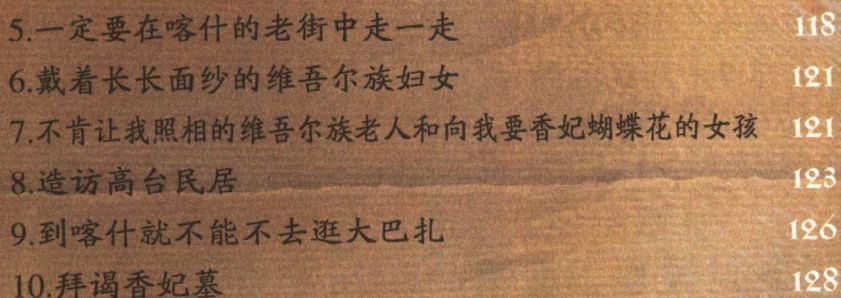 5.一定要在喀什的老街中走一走 118
6.戴着长长面纱的维吾尔族妇女 121
7.不肯让我照相的维吾尔族老人和向我要香妃蝴蝶花的女孩 121
8.造访高台民居 123
9.到喀什就不能不去逛大巴扎 126
10.拜谒香妃墓 128